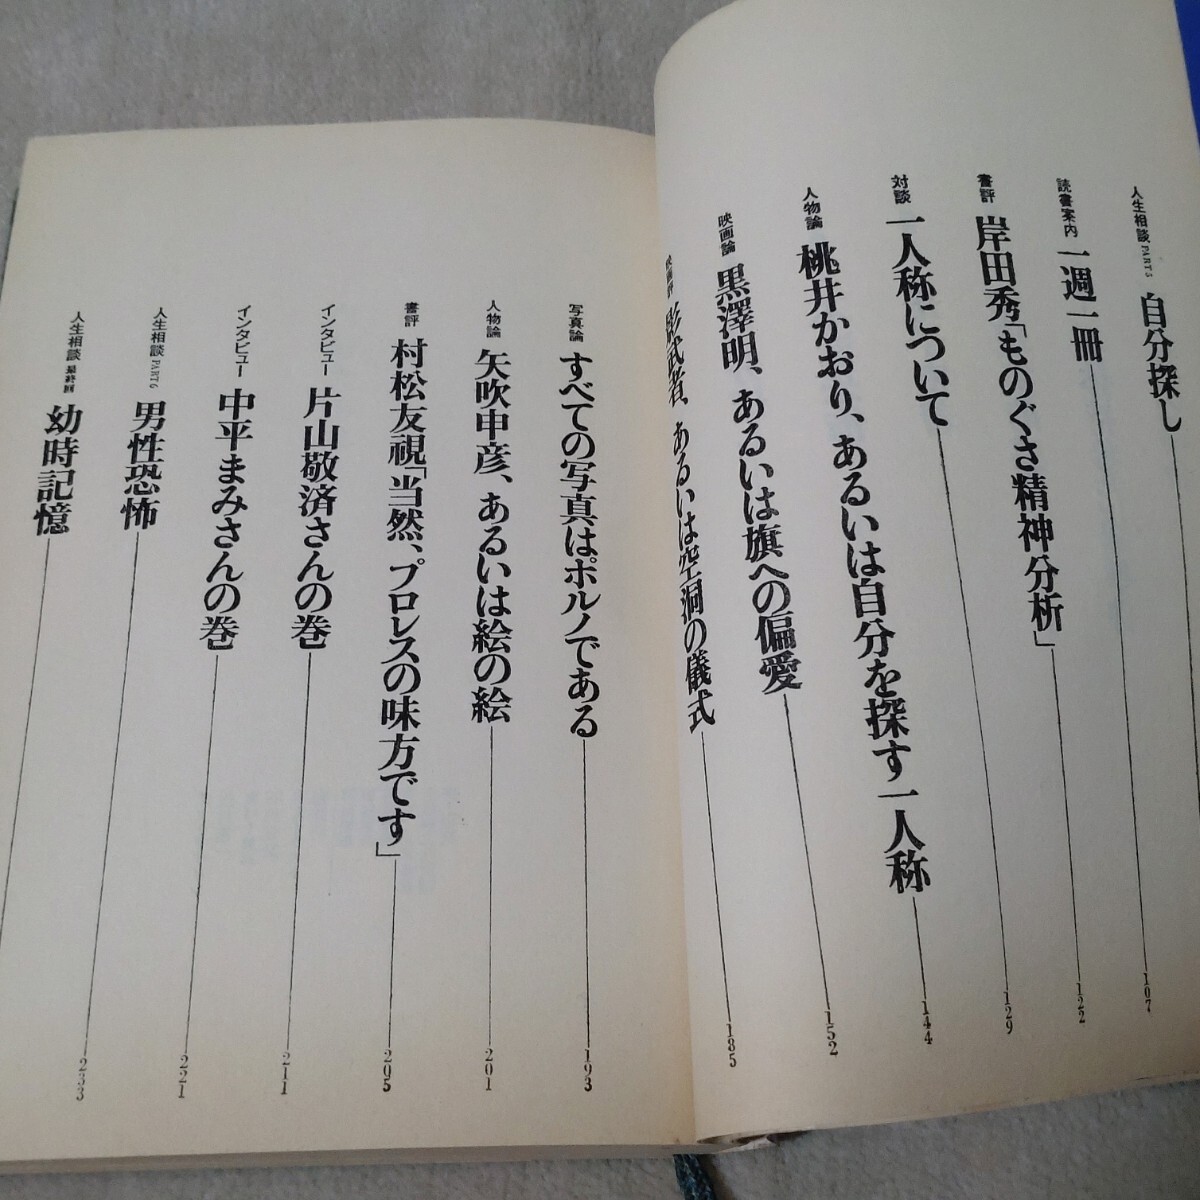 人生相談 PART5 自分探し
読書案内 一週一冊 107
書評 岸田秀「ものぐさ精神分析」 122
対談 一人称について 129
人物論 桃井かおり、あるいは自分を探す一人称 144
映画論 黒澤明、あるいは旗への偏愛 152
影武者、あるいは空洞の儀式 185
写真論 すべての写真はポルノである 193
人物論 矢吹申彦、あるいは絵の絵 201
書評 村松友視「当然、プロレスの味方です」 205
インタビュー 片山敬済さんの巻 211
インタビュー 中平まみさんの巻 221
人生相談 PART6 男性恐怖 233
人生相談 最終回 幼時記憶